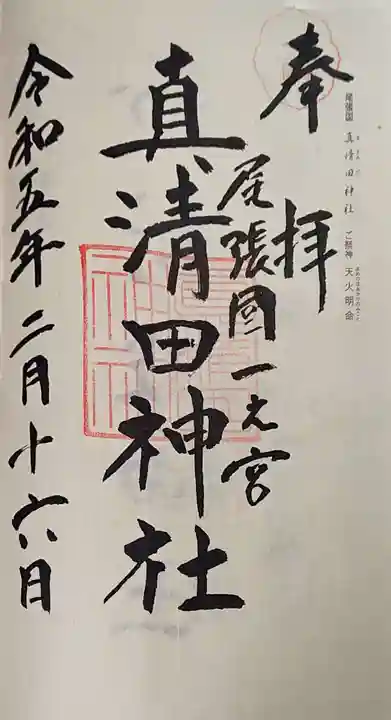 尾張国 真清田神社 ご祭神 天火明命
奉拝
尾張國一之宮
真清田神社
令和五年二月十六日